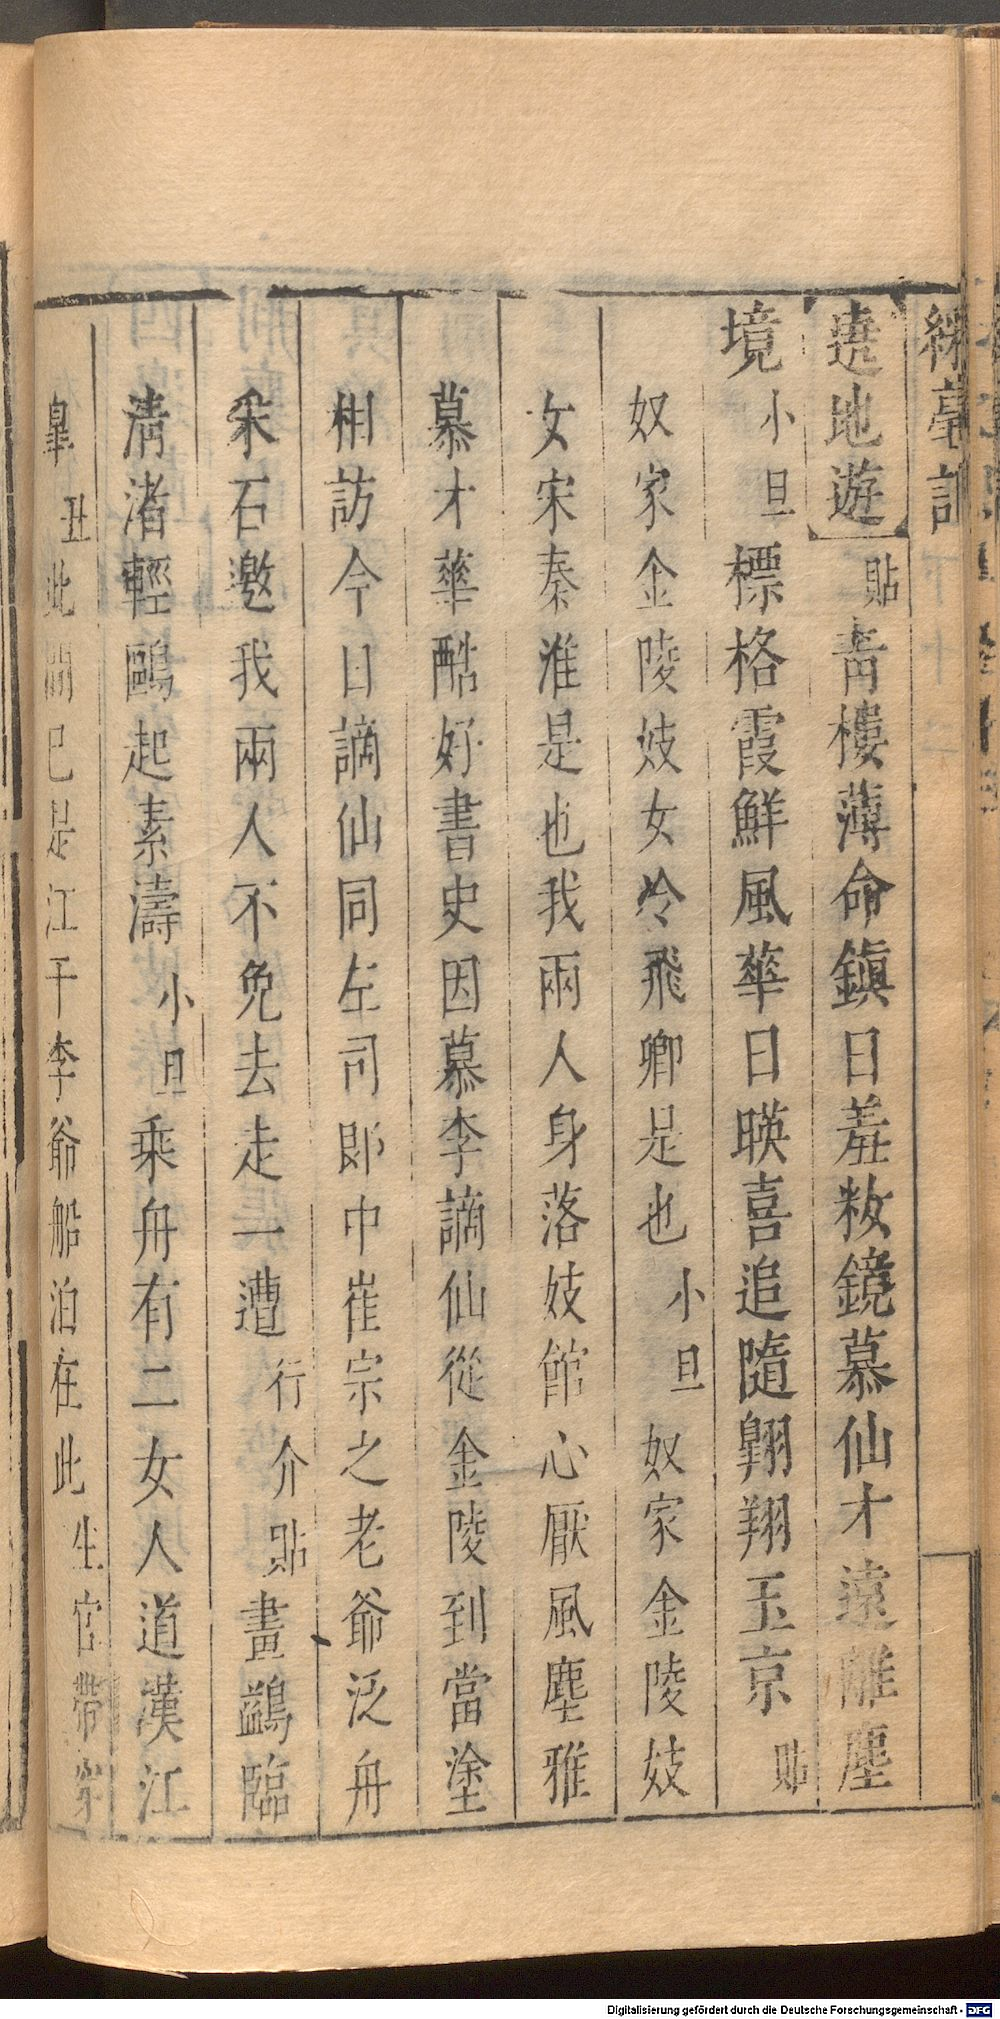 綵毫記
遶地遊 貼 靑樓薄命鎭日羞粧鏡慕仙才遠離塵
境 小旦 標格霞鮮風華日暎喜追隨翺翔玉京 貼
奴家金陵妓女冷飛卿是也 小旦 奴家金陵妓
女宋秦淮是也我兩人身落妓館心厭風塵雅
慕才華酷好書史因慕李謫仙從金陵到當塗
相訪今日謫仙同左司郎中崔宗之老爺泛舟
采石邀我兩人不免去走一遭 行介 貼 畫鷁臨
清渚輕鷗起素濤 小旦 乘舟有二女人道漢江
皐 丑 此間已是江干李爺船泊在此 生官帶
Digitalisierung gefördert durch die Deutsche Forschungsgemeinschaft - DFG